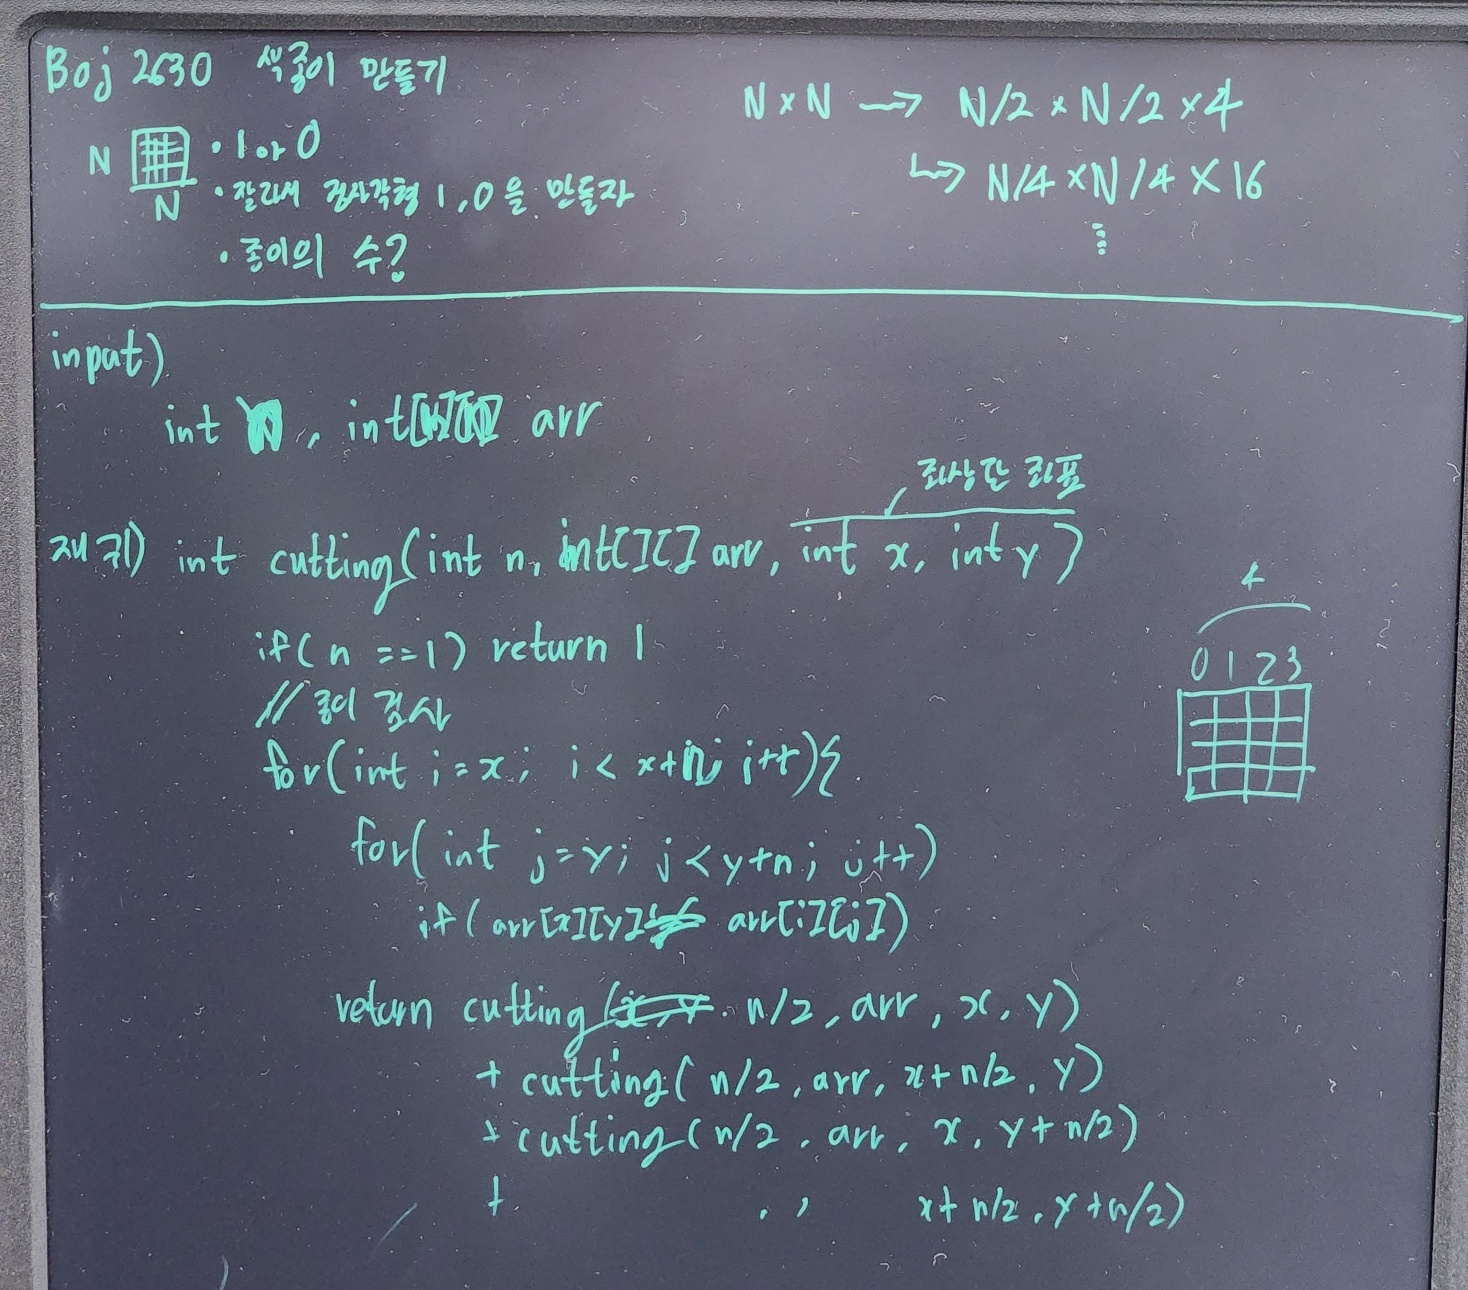 Boj 2630 색종이 만들기
N × N → N/2 × N/2 × 4
↳ N/4 × N/4 × 16
N
N
• 1 or 0
• 잘라서 정사각형 1, 0을 만들자
• 종이의 수?
input)
int N, int[N][N] arr
좌상단 좌표
재귀) int cutting(int n, int[][] arr, int x, int y)
if(n ==1) return 1
// 종이 검사
for(int i=x; i< x+n; i++){
for(int j=y; j<y+n; j++)
if(arr[x][y]!= arr[i][j])
return cutting( n/2, arr, x, y)
+ cutting( n/2, arr, x+n/2, y)
+ cutting(n/2, arr, x, y+n/2)
+ , , x+n/2, y+n/2)
4
0 1 2 3